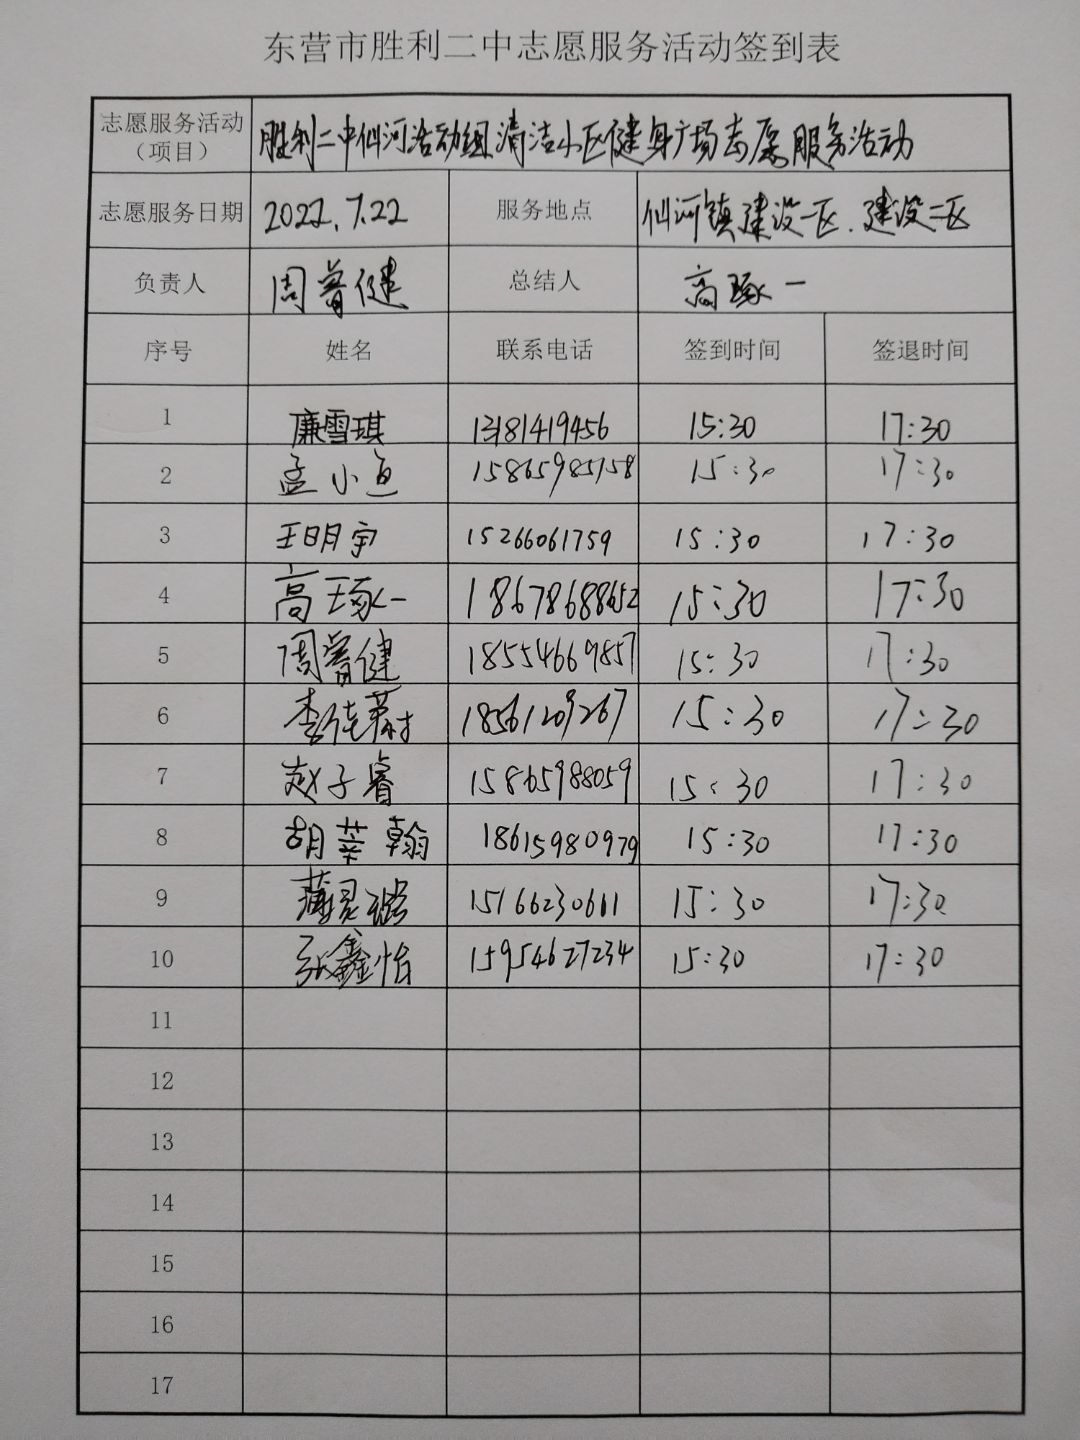 东营市胜利二中志愿服务活动签到表
志愿服务活动（项目） 胜利二中仙河活动组清洁小区健身广场志愿服务活动
志愿服务日期 2022.7.22 服务地点 仙河镇建设一区、建设二区
负责人 周曾健 总结人 高琢一
序号 姓名 联系电话 签到时间 签退时间
1 廉雪琪 13181419456 15:30 17:30
2 孟小迪 15865985158 15:30 17:30
3 王明宇 15266061759 15:30 17:30
4 高琢一 18678688652 15:30 17:30
5 周曾健 18554669857 15:30 17:30
6 李佳 18561209267 15:30 17:30
7 赵子睿 15865988059 15:30 17:30
8 胡莘翰 18615980979 15:30 17:30
9 蒲灵璐 15166230611 15:30 17:30
10 张鑫怡 15954627234 15:30 17:30
11
12
13
14
15
16
17